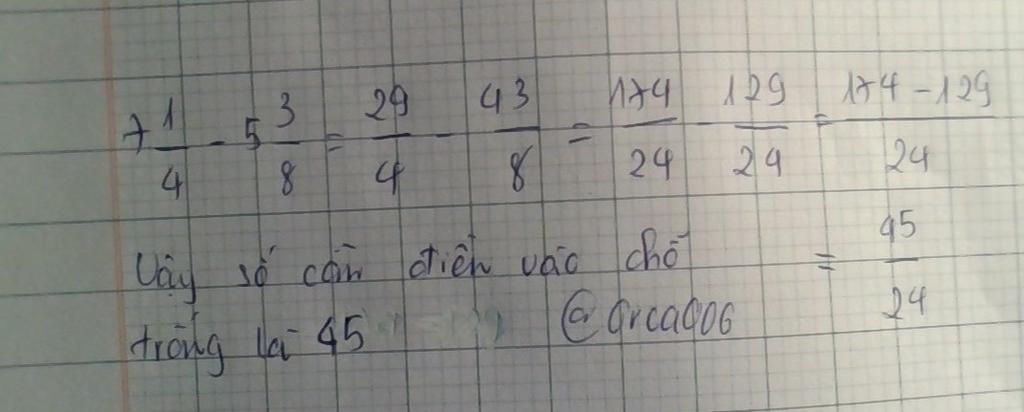 7 1/4 - 5 3/8 = 29/4 - 43/8 = 174/24 - 129/24 = 174 - 129/24
= 45/24
Vậy số cần điền vào chỗ
trống là 45